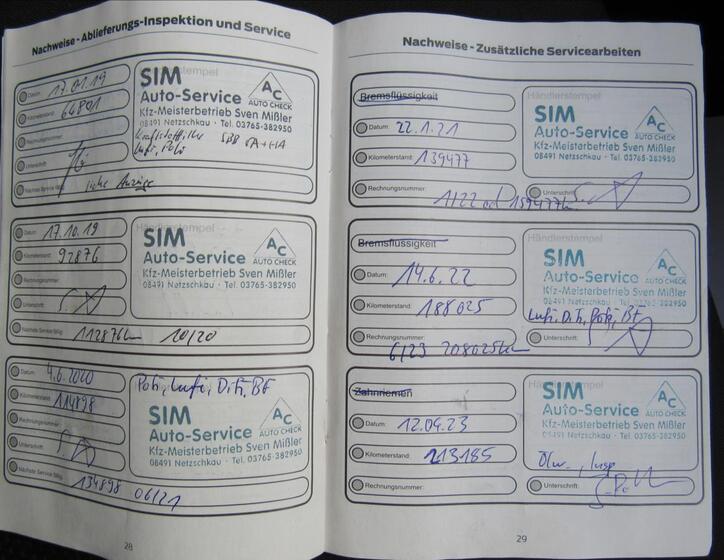 Nachweise - Ablieferungs-Inspektion und Service
Datum: 17.01.19
Kilometerstand: 66801
Rechnungsnummer:
Unterschrift:
Nächste Service fällig: siehe Anzeige
SIM
Auto-Service
AC
AUTO CHECK
Kfz-Meisterbetrieb Sven Mißler
08491 Netzschkau · Tel. 03765-382950
Kraftstofffilter
Lufi, Pofi
Datum: 17.10.19
Kilometerstand: 92876
Rechnungsnummer:
Unterschrift:
Nächste Service fällig: 112876km 10/20
SIM
Auto-Service
AC
AUTO CHECK
Kfz-Meisterbetrieb Sven Mißler
08491 Netzschkau · Tel. 03765-382950
Datum: 4.6.2020
Kilometerstand: 114898
Rechnungsnummer:
Unterschrift:
Nächste Service fällig: 134898 06/21
Pofi, Lufi, D.Fi, BF
SIM
Auto-Service
AC
AUTO CHECK
Kfz-Meisterbetrieb Sven Mißler
08491 Netzschkau · Tel. 03765-382950
28
Nachweise - Zusätzliche Servicearbeiten
Bremsflüssigkeit
Datum: 22.1.21
Kilometerstand: 139477
Rechnungsnummer: 1/22 od 159477km
Händlerstempel
SIM
Auto-Service
AC
AUTO CHECK
Kfz-Meisterbetrieb Sven Mißler
08491 Netzschkau · Tel. 03765-382950
Unterschrift:
Bremsflüssigkeit
Datum: 14.6.22
Kilometerstand: 188025
Rechnungsnummer: 6/23 208025km
Händlerstempel
SIM
Auto-Service
AC
AUTO CHECK
Kfz-Meisterbetrieb Sven Mißler
08491 Netzschkau · Tel. 03765-382950
Lufi, D.Fi, Pofi, BF
Unterschrift:
Zahnriemen
Datum: 12.09.23
Kilometerstand: 213185
Rechnungsnummer:
SIM
Auto-Service
AC
AUTO CHECK
Kfz-Meisterbetrieb Sven Mißler
08491 Netzschkau · Tel. 03765-382950
Ölw., Insp
Unterschrift:
29